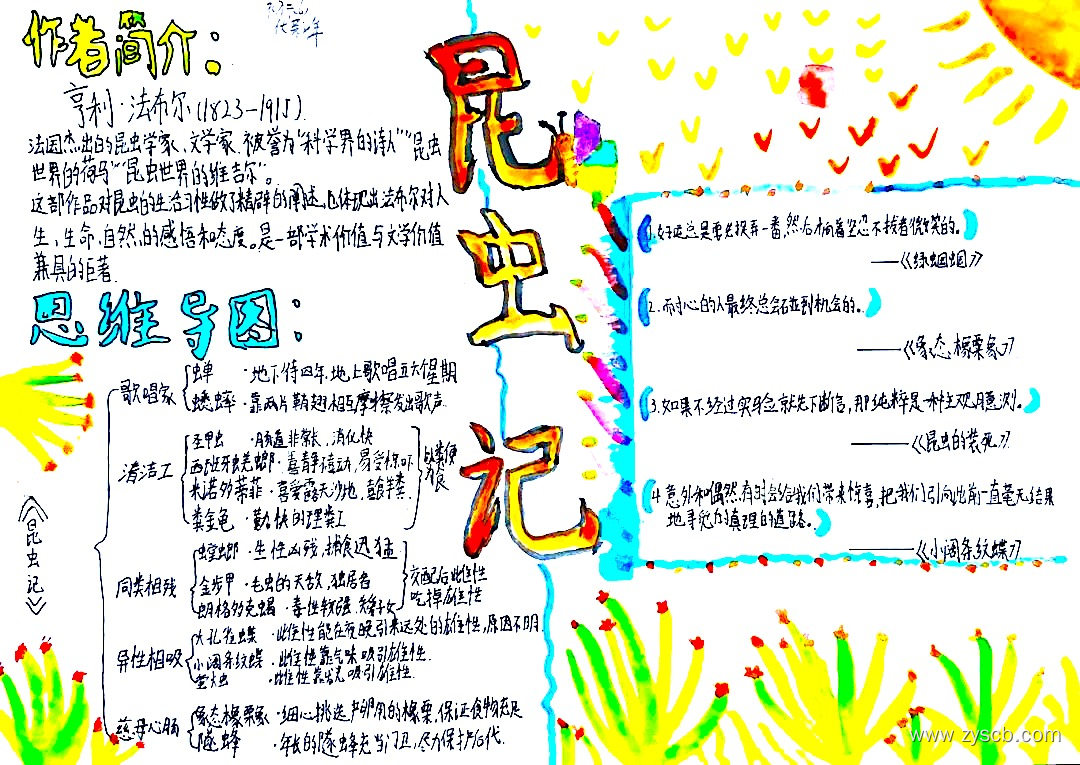 作者简介：
亨利·法布尔(1823-1915)
法国杰出的昆虫学家、文学家，被誉为"科学界的诗人""昆虫
世界的荷马""昆虫世界的维吉尔"。
这部作品对昆虫的生活习性做了精辟的阐述，也体现出法布尔对人
生，生命，自然，的感悟和态度。是一部学术价值与文学价值
兼具的巨著
思维导图：
昆虫记
《昆虫记》
歌唱家
蝉 ·地下待四年，地上歌唱五六星期
蟋蟀·靠两片鞘翅相互摩擦发出歌声
清洁工
圣甲虫 ·肠道非常长，消化快
西班牙蜣螂·喜静
米诺多蒂菲·喜爱露天沙地，羊粪
粪金龟·勤快的理粪工
以粪便为食
同类相残
螳螂·生性凶残，捕食迅猛
金步甲·毛虫的天敌，独居者
朗格多克蝎·毒性较强
交配后雌性
吃掉雄性
异性相吸
大孔雀蝶·雌性能在夜晚引来远处的雄性，原因不明
小阔条纹蝶·雌性靠气味吸引雄性.
萤火虫·雌性靠发光吸引雄性.
慈母心肠
象态橡栗象·细心挑选产卵用的橡栗，保证食物充足
隧蜂·年长的隧蜂充当门卫，尽力保护后代.
1.好运总是要先捉弄一番，然后才向着坚忍不拔者微笑的。
——《绿蝈蝈》
2.有耐心的人最终总会碰到机会的。
——《象态橡栗象》
3.如果不经过实验就先下断言，那纯粹是一种主观臆测。
——《昆虫的装死》
4.意外和偶然，有时会给我们带来惊喜，把我们引向此前一直毫无结果
地寻觅的真理的道路。
——《小阔条纹蝶》
www.zyscb.com